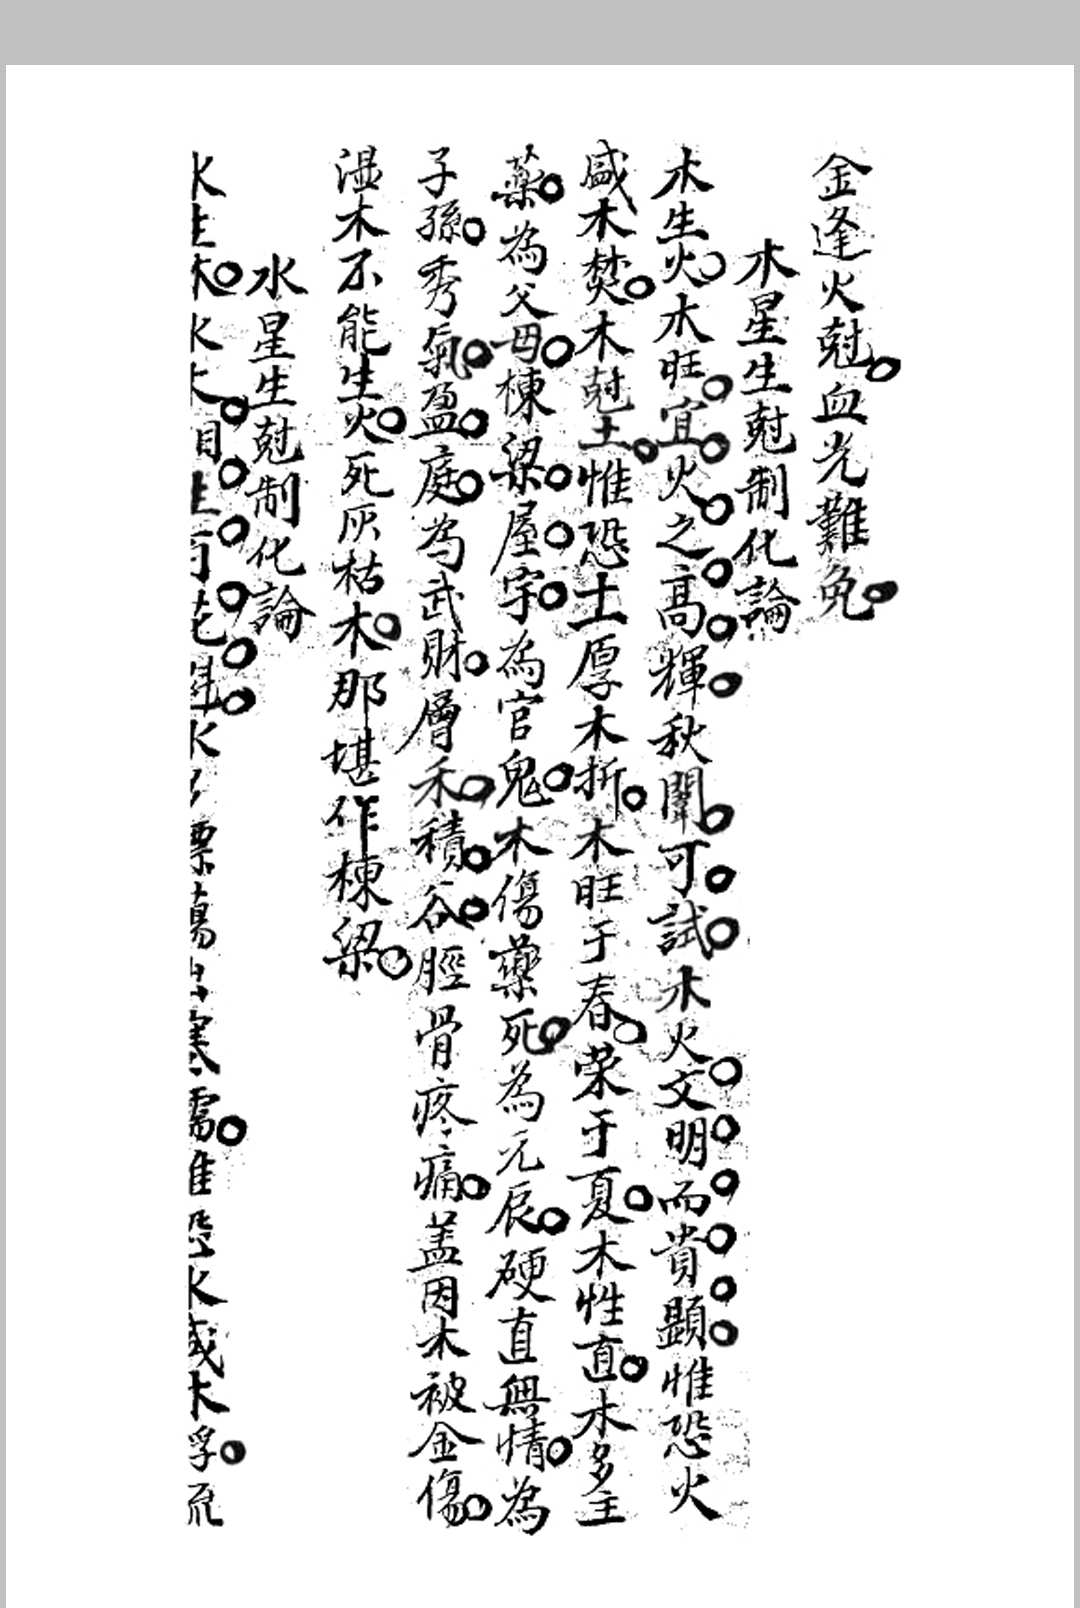 金逢火尅血光難免
木星生尅制化論
木生火木旺宜火之高輝秋闈可試木火文明而貴顯惟恐火
盛木焚木尅土惟恐土厚木折木旺于春荣于夏木性直木多主
藥為父母棟梁屋宇為官鬼木傷藥死為元辰硬直無情為
子孫秀氣盈庭為武財層禾積谷脛骨疼痛盖因木被金傷
湿木不能生火死灰枯木那堪作棟梁
水星生尅制化論
水生木水木相生有花水漂蕩出寒儒惟恐水盛木浮流